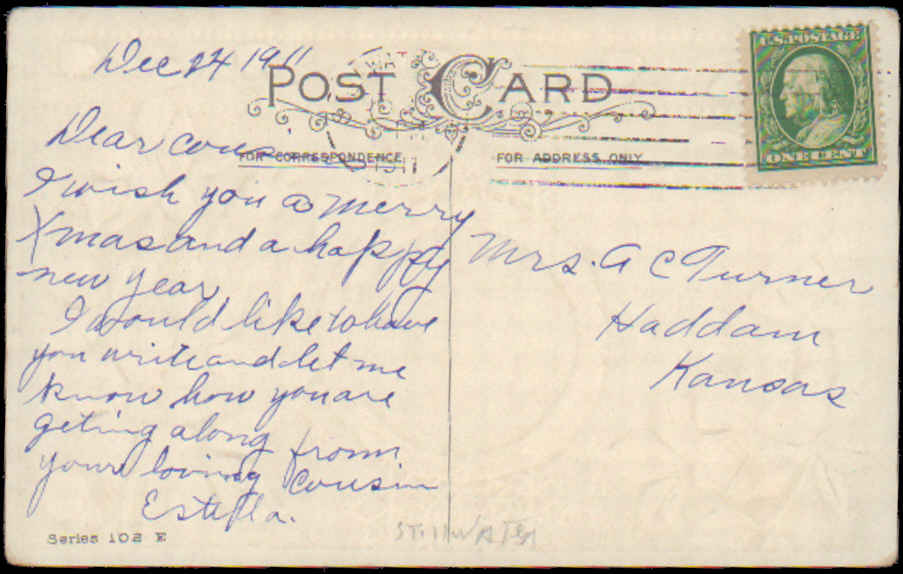 Dec 24 1911
POST CARD
U.S. POSTAGE
ONE CENT
Dear cous
FOR CORRESPONDENCE
1911
FOR ADDRESS ONLY
I wish you a merry
Xmas and a happy
new year
I would like to have
you write and let me
know how you are
geting along from
your loving cousin
Estella.
Mrs. A C Turner
Haddam
Kansas
Series 102 E